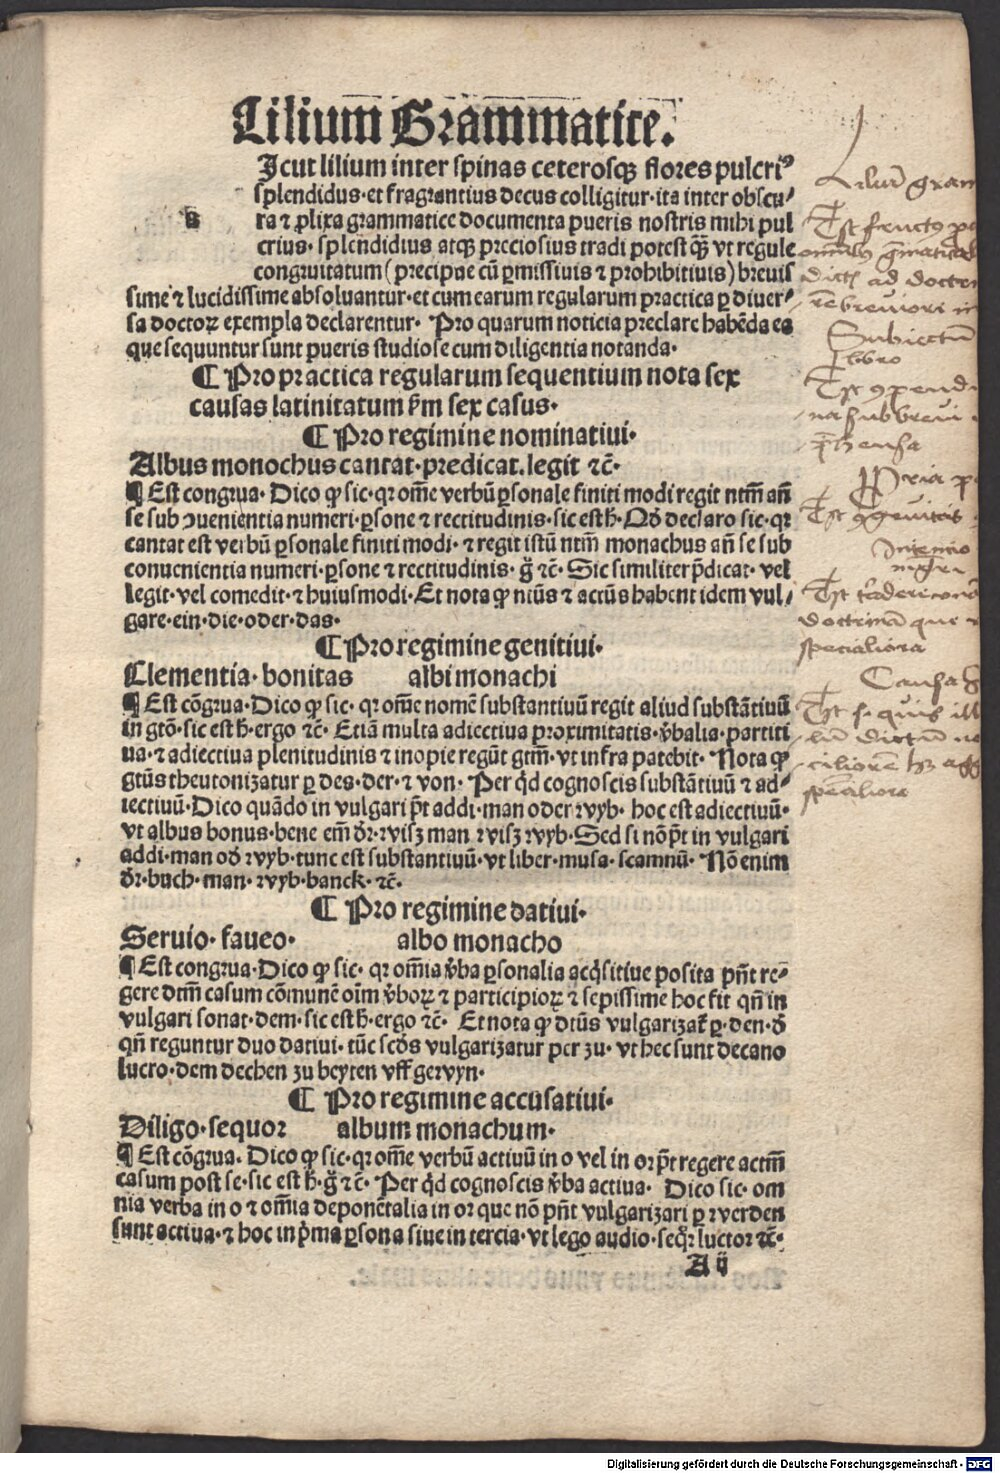 Lilium Grammatice.
s
Icut lilium inter spinas ceterosqꝫ flores pulcriꝰ
splendidus·et fragrantius decus colligitur·ita inter obscu⸗
ra ⁊ ꝓlixa grammatice documenta pueris nostris mihi pul
crius·splendidius atqꝫ preciosius tradi potest qꝫ̄ vt regule
congruitatum (precipue cū ꝑmissiuis ⁊ prohibitiuis) breuis
sime ⁊ lucidissime absoluantur·et cum earum regularum practica ꝑ diuer⸗
sa doctoꝝ exempla declarentur· Pro quarum noticia preclare habēda ea
que sequuntur sunt pueris studiose cum diligentia notanda·
¶ Pro practica regularum sequentium nota sex
causas latinitatum ẜm sex casus·
¶ Pro regimine nominatiui·
Albus monochus cantat·predicat.legit ⁊c̄·
¶ Est congrua· Dico ꝙ sic·qꝛ om̄e verbū ꝑsonale finiti modi regit nt̄m an̄
se sub ↄuenientia numeri·ꝑsone ⁊ rectitudinis·sic est h̄·Qđ declaro sic·qꝛ
cantat est verbū ꝑsonale finiti modi·⁊ regit istū nt̄m monachus an̄ se sub
conuenientia numeri·ꝑsone ⁊ rectitudinis·ḡ ⁊c̄· Sic similiter p̄dicat·vel
legit·vel comedit·⁊ huiusmodi·Et nota ꝙ nt̄us ⁊ actūs habent idem vul⸗
gare·ein·die·oder·das·
¶ Pro regimine genitiui·
Clementia·bonitas albi monachi
¶ Est cōgrua·Dico ꝙ sic·qꝛ om̄e nomē substantiuū regit aliud substātiuū
in gtō·sic est h̄·ergo ⁊c̄· Etiā multa adiectiua proximitatis·v̄balia·partiti
ua·⁊ adiectiua plenitudinis ⁊ inopie regūt gtm̄·vt infra patebit· Nota ꝙ
gtūs theutonizatur ꝑ des·der·⁊ von· Per qd̄ cognoscis substātiuū ⁊ ad⸗
iectiuū·Dico quādo in vulgari pt̄ addi·man oder wyb· hoc est adiectiuū·
vt albus bonus·bene em̄ dr̄·wisz man wisz wyb·Sed si nō pt̄ in vulgari
addi·man od̄ wyb·tunc est substantiuū·vt liber·musa·scamnū· Nō enim
dr̄·buch·man·wyb·banck·⁊c̄·
¶ Pro regimine datiui·
Seruio·faueo· albo monacho
¶ Est congrua·Dico ꝙ sic·qꝛ om̄ia v̄ba ꝑsonalia acq̄sitiue posita pn̄t re⸗
gere dtm̄ casum cōmunē oīm v̄boꝝ ⁊ participioꝝ ⁊ sepissime hoc fit qn̄ in
vulgari sonat·dem·sic est h̄·ergo ⁊c̄· Et nota ꝙ dtūs vulgarizat̄ ꝑ·den·đ
qn̄ reguntur duo datiui·tūc scd̄s vulgarizatur per zu·vt hec sunt decano
lucro·dem dechen zu beyten vff gewyn·
¶ Pro regimine accusatiui·
Diligo·sequor album monachum·
¶ Est cōgrua· Dico ꝙ sic·qꝛ om̄e verbū actiuū in o vel in or pt̄ regere actm̄
casum post se·sic est h̄·ḡ ⁊c̄· Per qd̄ cognoscis v̄ba actiua· Dico sic·om
nia verba in o ⁊ om̄ia deponētalia in or que nō pn̄t vulgarizari ꝑ werden
sunt actiua·⁊ hoc in p̄ma ꝑsona siue in tercia·vt lego audio·seqr̄ luctor ⁊c̄·
A ij
Subiectum
libro
Intencio
doctrinā que
specialiora
Causa
specialiora
Digitalisierung gefördert durch die Deutsche Forschungsgemeinschaft - DFG